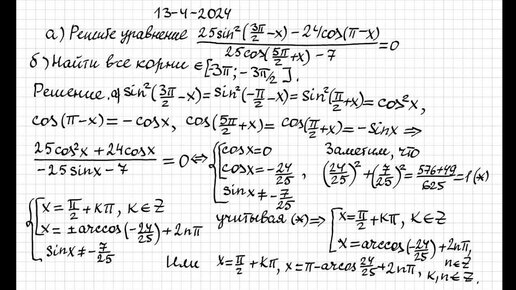 13-4-2024
а) Решите уравнение (25sin²(3π/2 -x) - 24cos(π-x))/(25cos(5π/2 +x) - 7) = 0
б) Найти все корни ∈ [-3π; -3π/2].
Решение. а) sin²(3π/2 -x) = sin²(-π/2 -x) = sin²(π/2 +x) = cos²x,
cos(π-x) = -cosx, cos(5π/2 +x) = cos(π/2 +x) = -sinx ⇒
(25cos²x + 24cosx)/(-25sinx - 7) = 0 ⇔ { [ cosx = 0
cosx = -24/25
sinx ≠ -7/25 ,
Заметим, что
(24/25)² + (7/25)² = (576+49)/625 = 1 (*)
{ [ x = π/2 + kπ, k ∈ Z
x = ± arccos(-24/25) + 2nπ
sinx ≠ -7/25
учитывая (*) ⇒ [ x = π/2 + kπ, k ∈ Z
x = arccos(-24/25) + 2nπ, n ∈ Z
Или x = π/2 + kπ, x = π - arccos 24/25 + 2nπ, k, n ∈ Z.